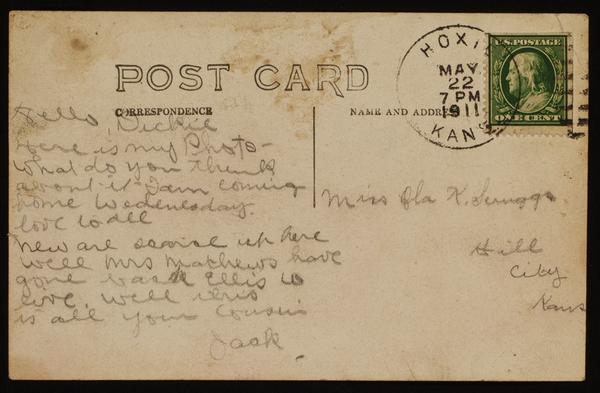 POST CARD
CORRESPONDENCE
NAME AND ADDRESS
HOXIE
MAY
22
7 PM
1911
KANS
U.S. POSTAGE
ONE CENT
Hello Dickie
Here is my Photo-
What do you think
about it I am coming
home Wedenesday.
love to all
new are up here
well Mrs Mathews have
gone back Ellis to
live. well this
is all your Cousin
Jack
Miss Ola K. Scruggs
Hill
City
Kans